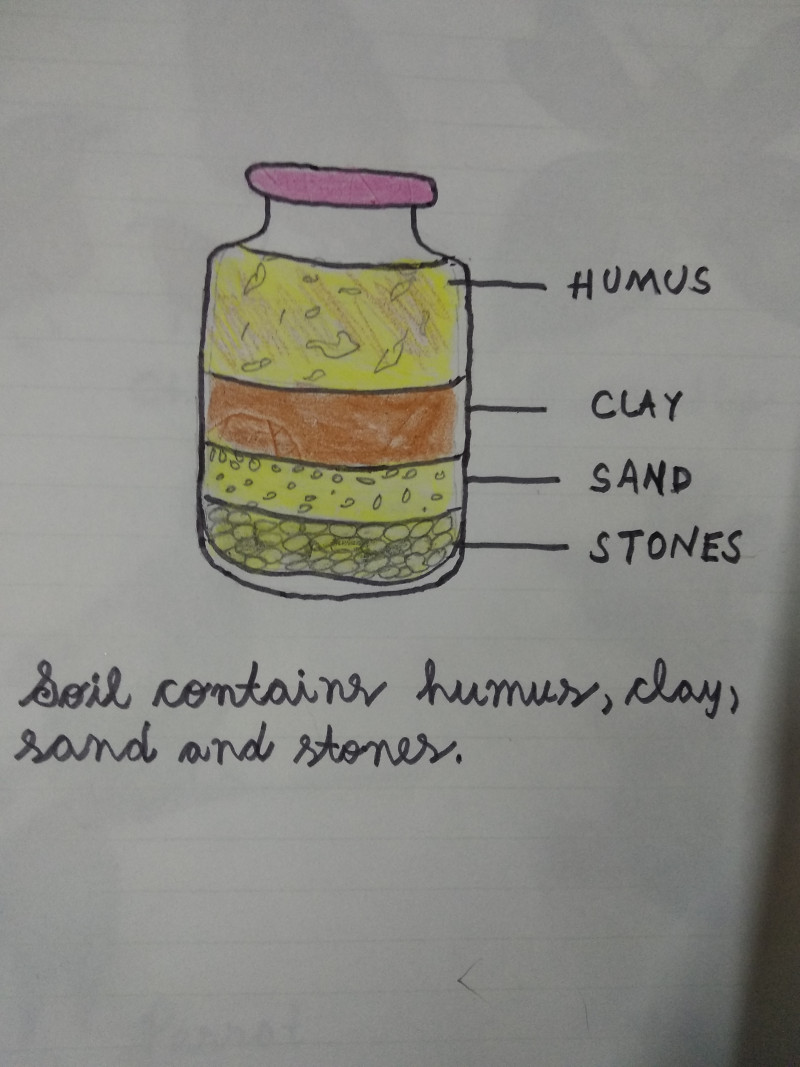 HUMUS
CLAY
SAND
STONES
Soil contains humus, clay,
sand and stones.